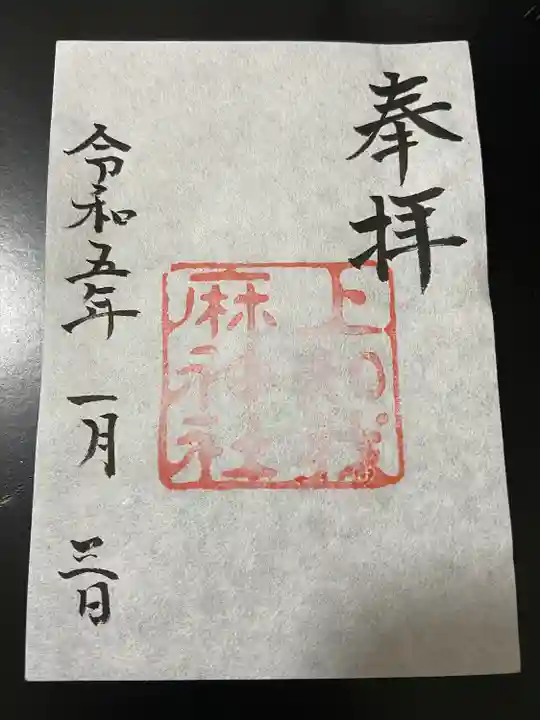 奉拝
上
麻
神社
令和五年 一月 三日